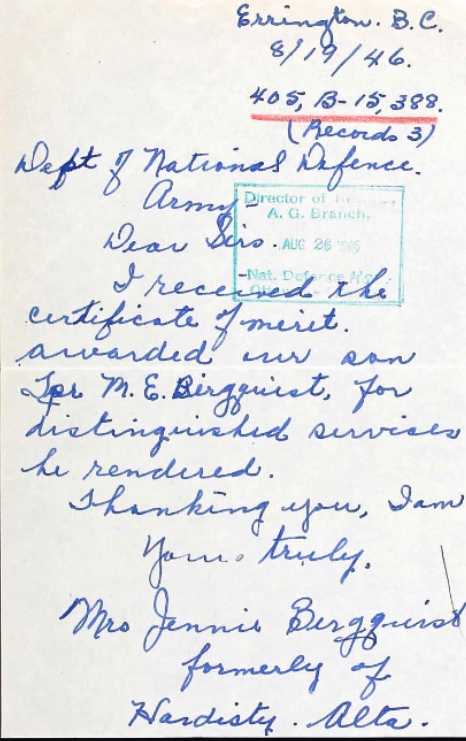 Errington. B.C.
8/19/46.
405, B-15,388.
(Records 3)
Dept of National Defence.
Army-
Director of
A. G. Branch.
AUG 26
Nat. Defence
Dear Sirs.
I received the
certificate of merit.
awarded our son
Tpr M. E. Bergquist, for
distinguished services
he rendered.
Thanking you, I am
Yours truly.
Mrs Jennie Bergquist
formerly of
Hardisty. Alta.